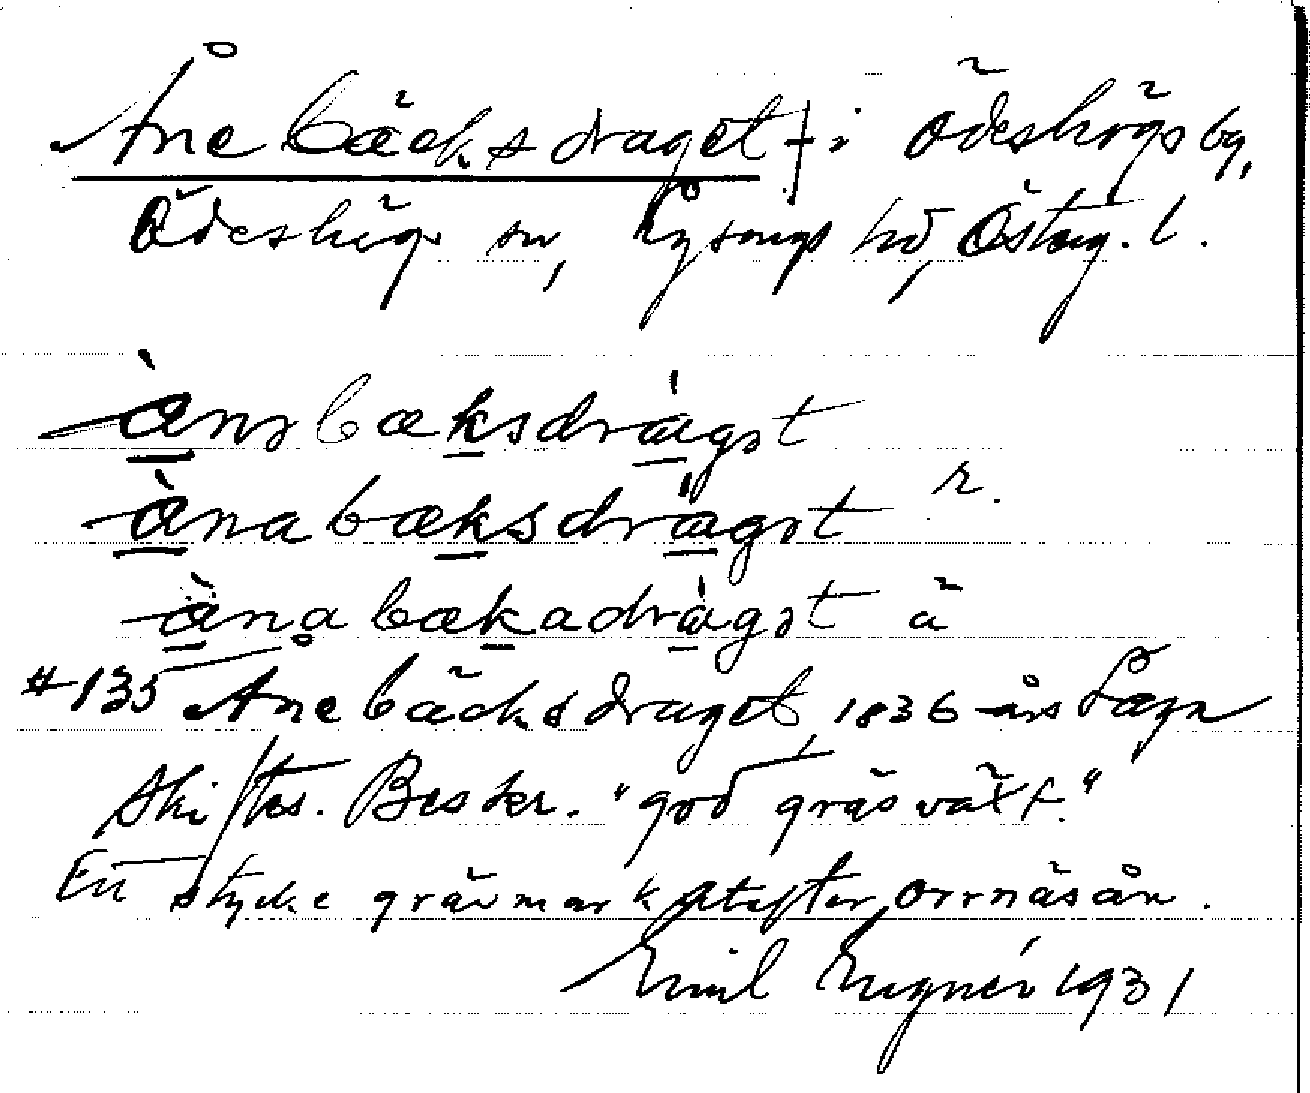 Ånebäcksdraget † i Ödeshögs by,
Ödeshögs sn, Lysings hd, Österg. l.
ànəbæksdràgət
ànabæksdràgət r.
ànabækadràgət ä
#135 Ånebäcksdraget, 1836 års Laga
Skiftes. Beskr. "god gräsväxt."
En stycke gräsmark utefter Orrnäsån.
Emil 1931